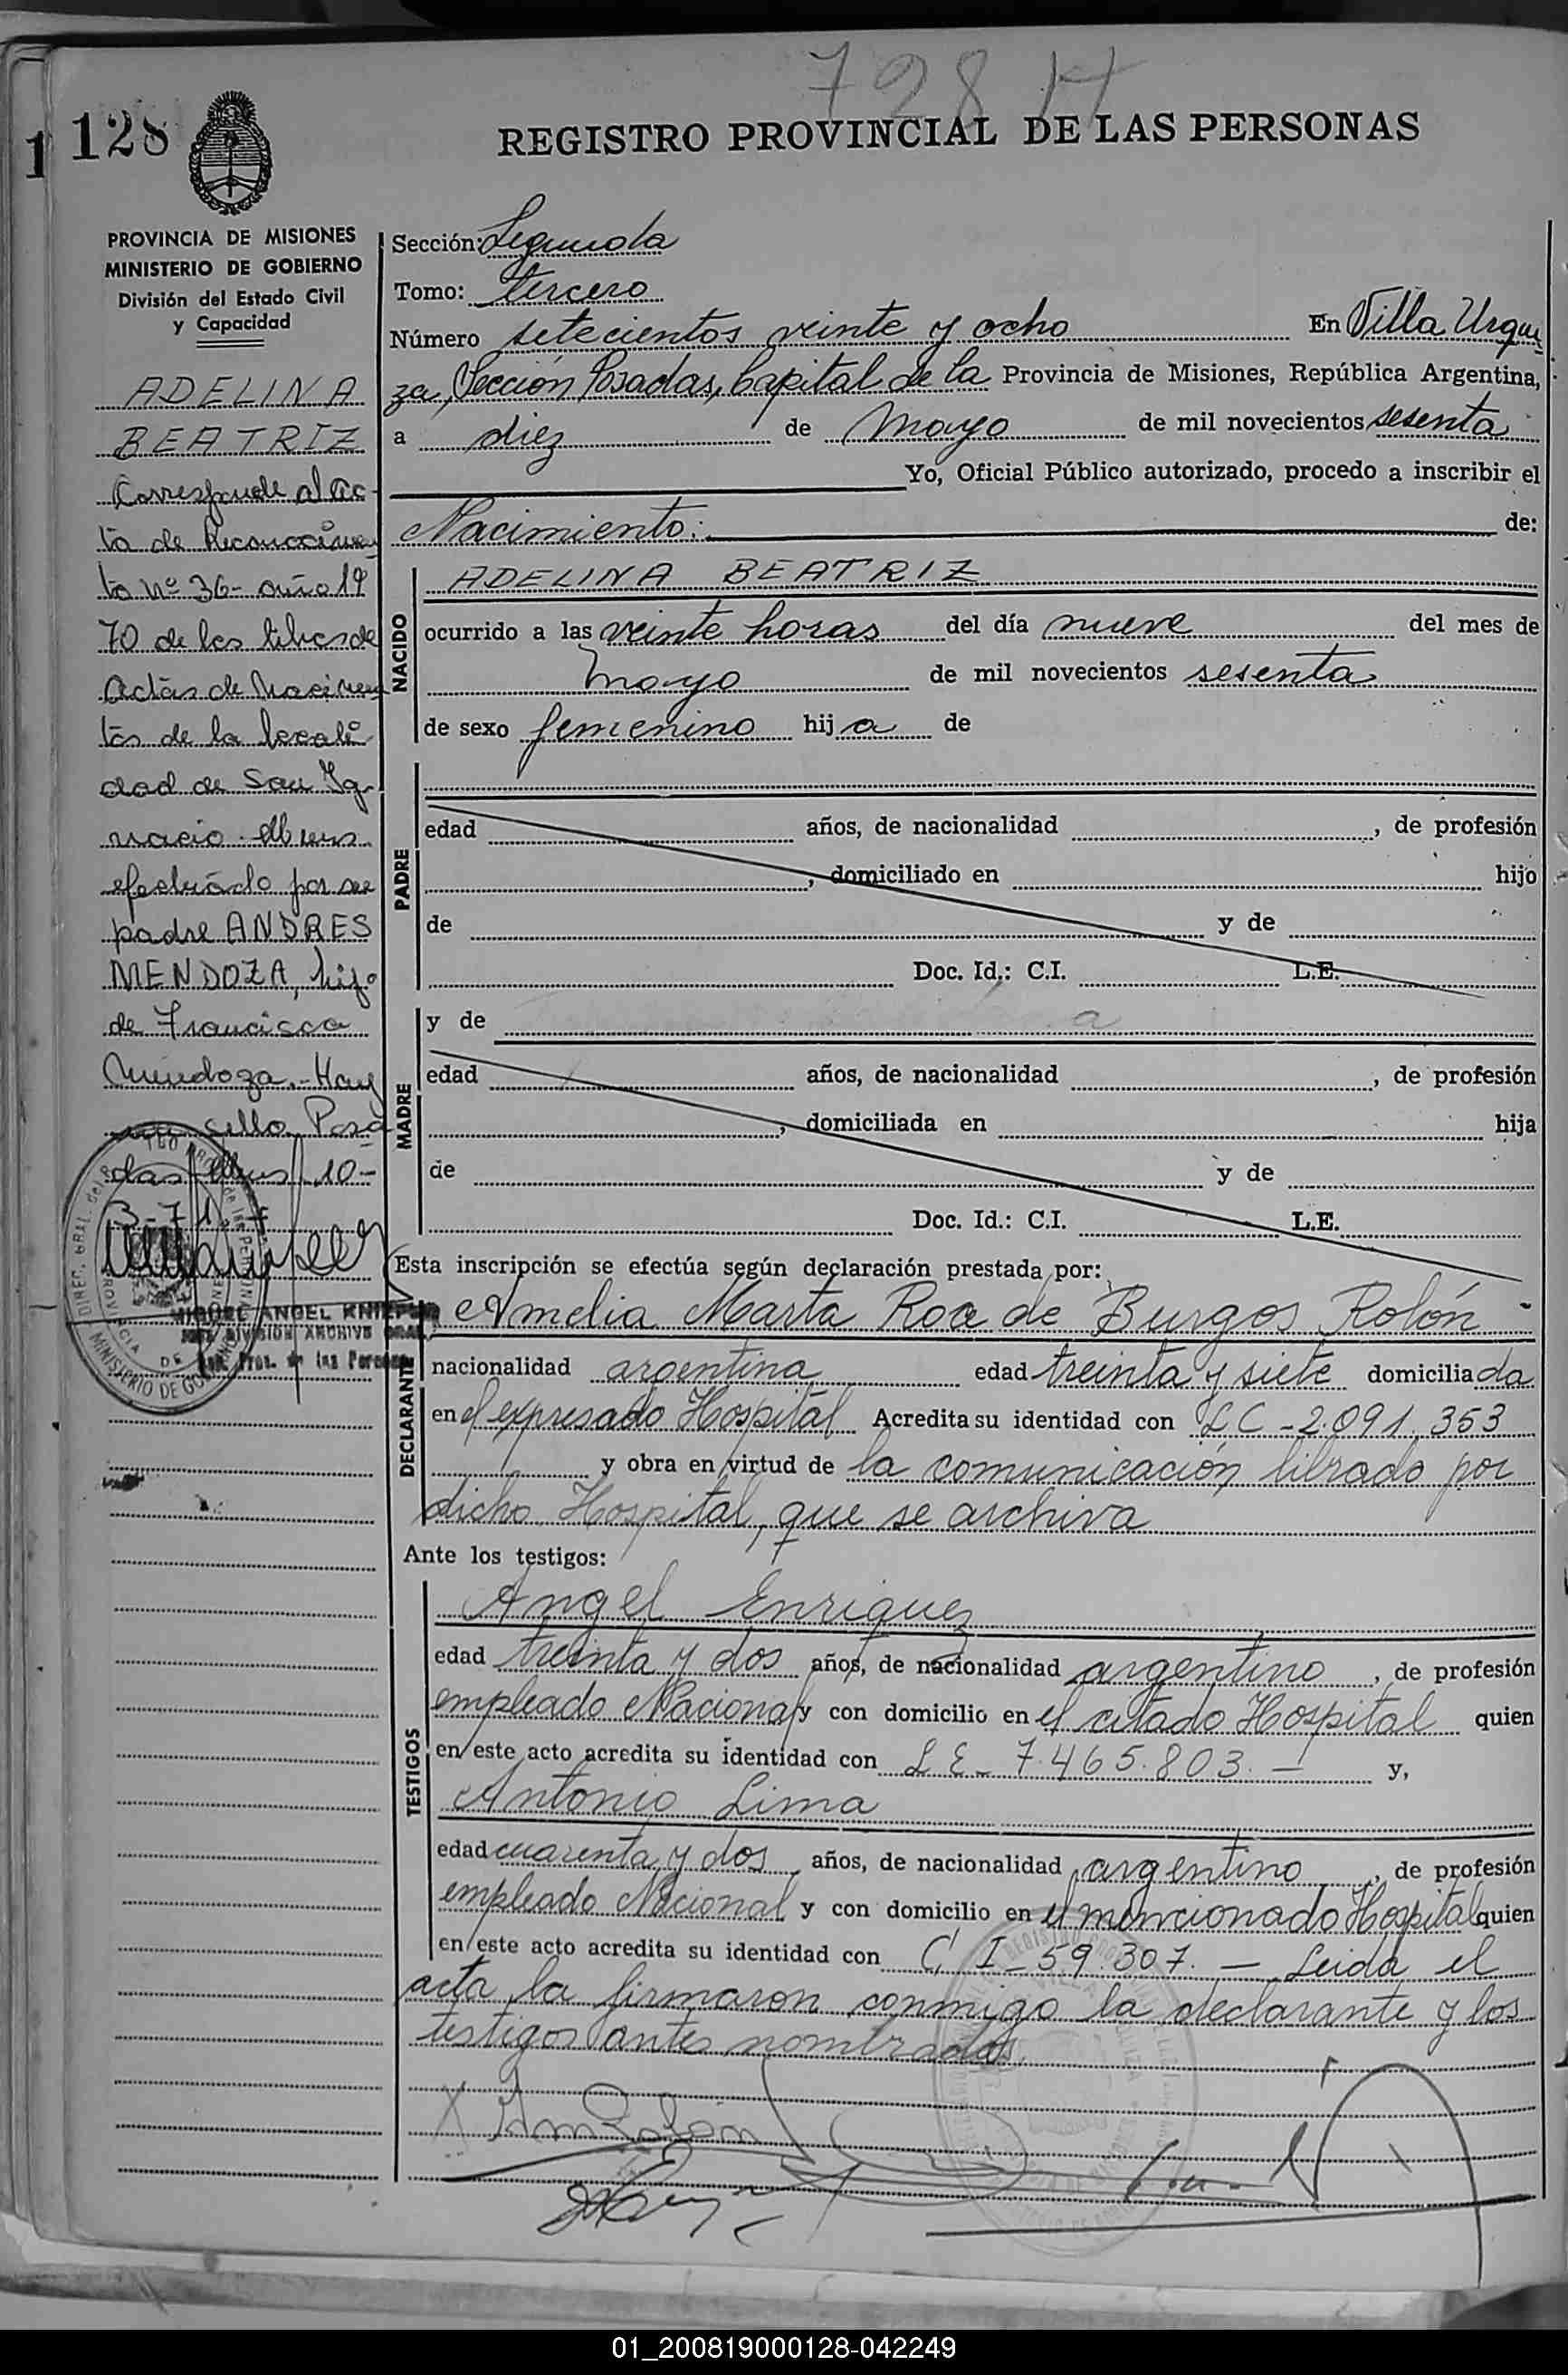 728 H
1
128
REGISTRO PROVINCIAL DE LAS PERSONAS
PROVINCIA DE MISIONES
MINISTERIO DE GOBIERNO
División del Estado Civil
y Capacidad
ADELINA
BEATRIZ
Corresponde al ac-
ta de Reconocimien
to Nº 36- año 19
70 de los libros de
Actas de Nacimien
tos de la locali
dad de San Ig-
nacio
efectuado por su
padre ANDRES
MENDOZA, hijo
de Francisca
Mendoza.- Hay
un sello. Posa
das 10-
3-71
MIGUEL ANGEL
JEFE DIVISION ARCHIVO GRAL.
Prov. de las Personas
Sección: Segunda
Tomo: tercero
Número setecientos veinte y ocho En Villa Urqui
za, Sección Posadas, Capital de la Provincia de Misiones, República Argentina,
a diez de Mayo de mil novecientos sesenta
Yo, Oficial Público autorizado, procedo a inscribir el
Nacimiento: de:
NACIDO
ADELINA BEATRIZ
ocurrido a las veinte horas del día nueve del mes de
Mayo de mil novecientos sesenta
de sexo femenino hija de
PADRE
edad años, de nacionalidad , de profesión
, domiciliado en hijo
de y de
Doc. Id.: C.I. L.E.
MADRE
y de
edad años, de nacionalidad , de profesión
, domiciliada en hija
de y de
Doc. Id.: C.I. L.E.
Esta inscripción se efectúa según declaración prestada por:
DECLARANTE
Amelia Marta Roa de Burgos Rolón -
nacionalidad argentina edad treinta y siete domiciliada
en el expresado Hospital Acredita su identidad con LC - 2.091.353
y obra en virtud de la comunicación librado por
dicho Hospital, que se archiva
Ante los testigos:
TESTIGOS
Angel Enriquez
edad treinta y dos años, de nacionalidad argentino , de profesión
empleado Nacional y con domicilio en el citado Hospital quien
en este acto acredita su identidad con LE- 7.465.803. — y,
Antonio Lima
edad cuarenta y dos años, de nacionalidad argentino , de profesión
empleado Nacional y con domicilio en el mencionado Hospital quien
en este acto acredita su identidad con C I - 59.307. — Leida el
acta la firmaron conmigo la declarante y los
testigos antes nombrados
01_200819000128-042249